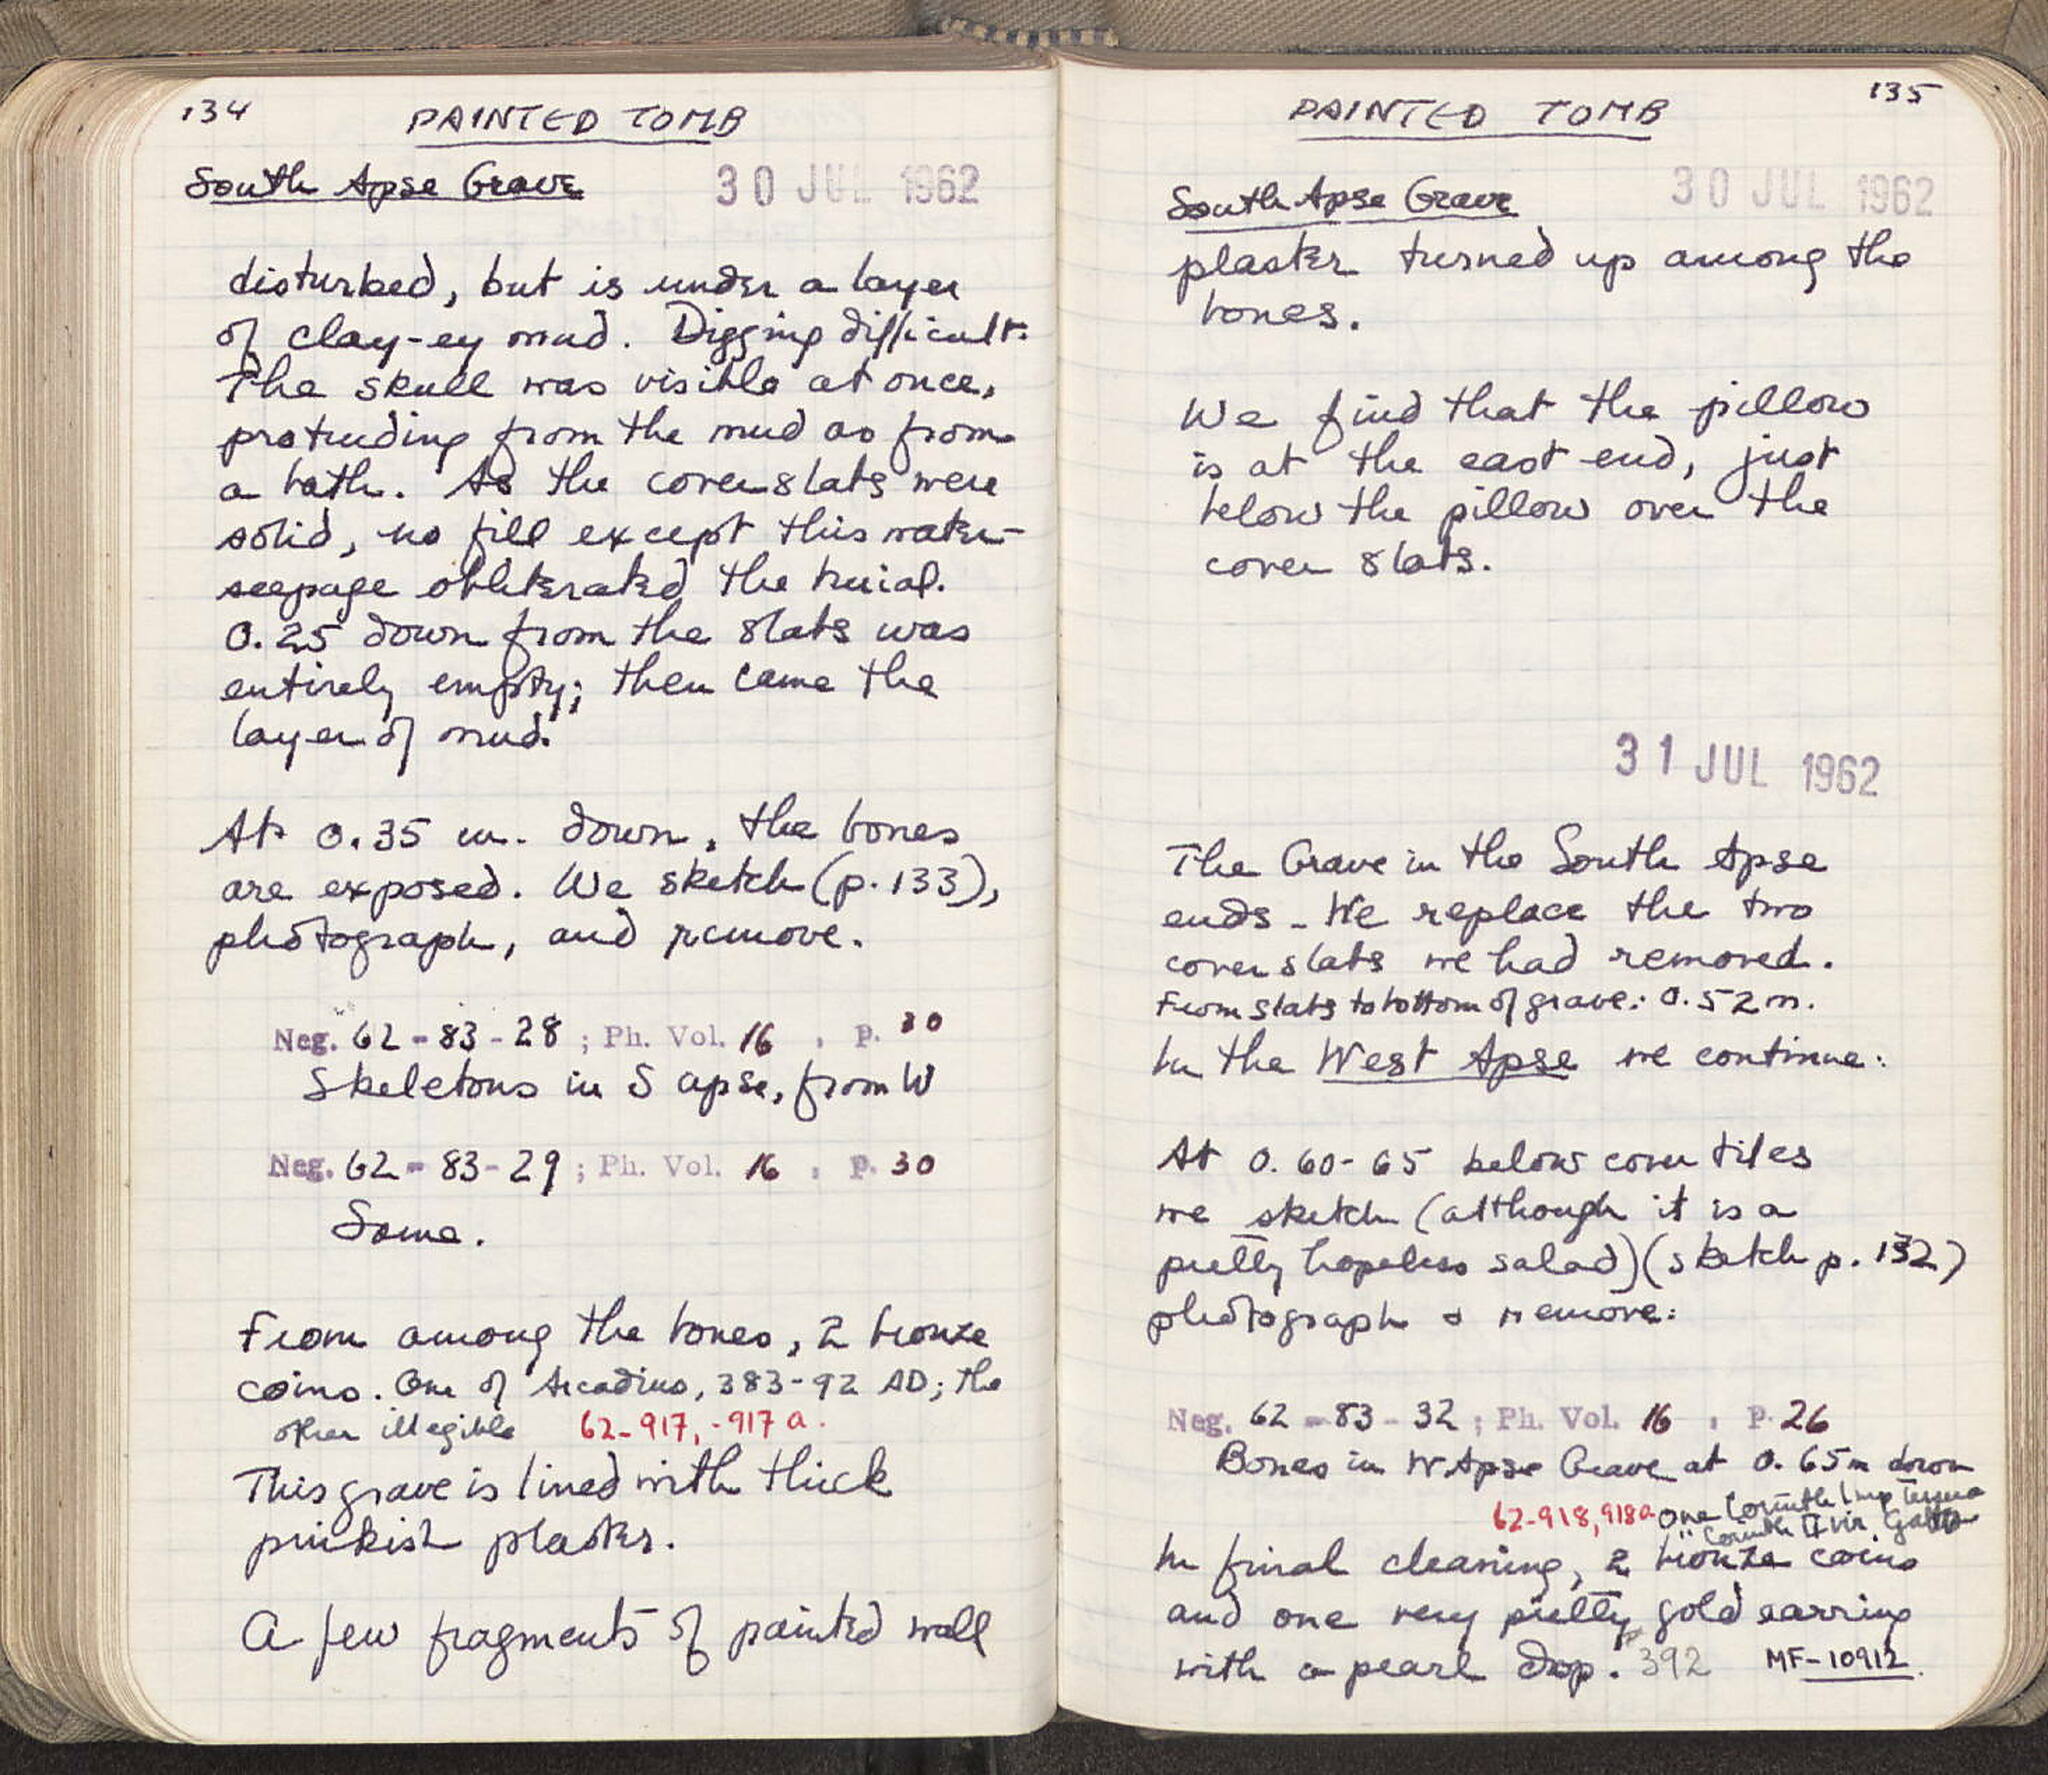 134
PAINTED TOMB
South Apse Grave
30 JUL 1962
disturbed, but is under a layer
of clay-ey mud. Digging difficult.
The skull was visible at once,
protruding from the mud as from
a bath. As the cover slabs were
solid, no fill except this water-
seepage obliterated the burial.
0.25 down from the slabs was
entirely empty; then came the
layer of mud.
At 0.35 m. down, the bones
are exposed. We sketch (p. 133),
photograph, and remove.
Neg. 62-83-28; Ph. Vol. 16, p. 30
Skeletons in S apse, from W
Neg. 62-83-29; Ph. Vol. 16, p. 30
Same.
From among the bones, 2 bronze
coins. One of Arcadius, 383-92 AD; the
other illegible 62-917, -917a.
This grave is lined with thick
pinkish plaster.
A few fragments of painted wall
135
PAINTED TOMB
South Apse Grave
30 JUL 1962
plaster turned up among the
bones.
We find that the pillow
is at the east end, just
below the pillow over the
cover slabs.
31 JUL 1962
The Grave in the South Apse
ends. We replace the two
cover slabs we had removed.
From slabs to bottom of grave: 0.52 m.
In the West Apse we continue:
At 0.60-65 below cover tiles
we sketch (although it is a
pretty hopeless salad) (sketch p. 132)
photograph & remove:
Neg. 62-83-32; Ph. Vol. 16, p. 26
Bones in W Apse Grave at 0.65m down
62-918, 918a one Corinth Imp
" Corinth II vir.
In final cleaning, 2 bronze coins
and one very pretty gold earring
with a pearl drop. 392 MF-10912